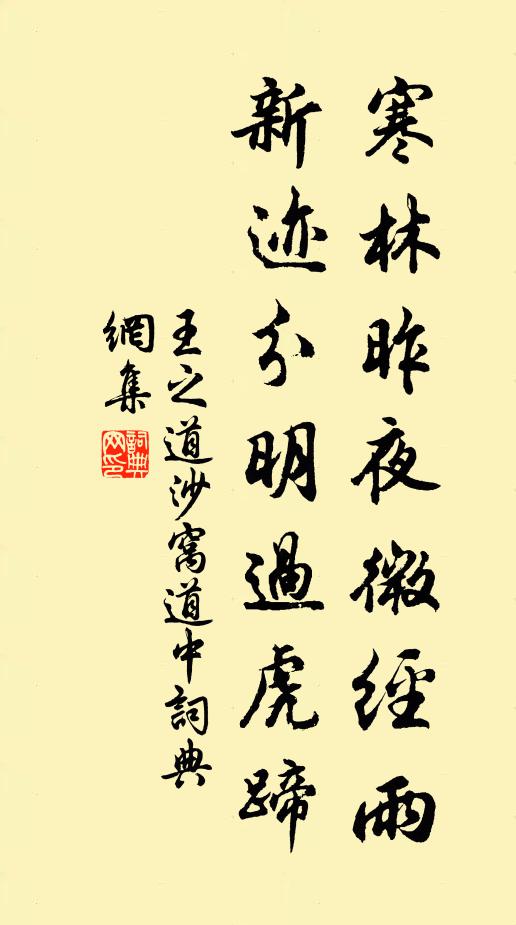 寒林昨夜微經雨
新迹分明過虎蹄
王之道沙窩道中詞典
網集
詞典
网印